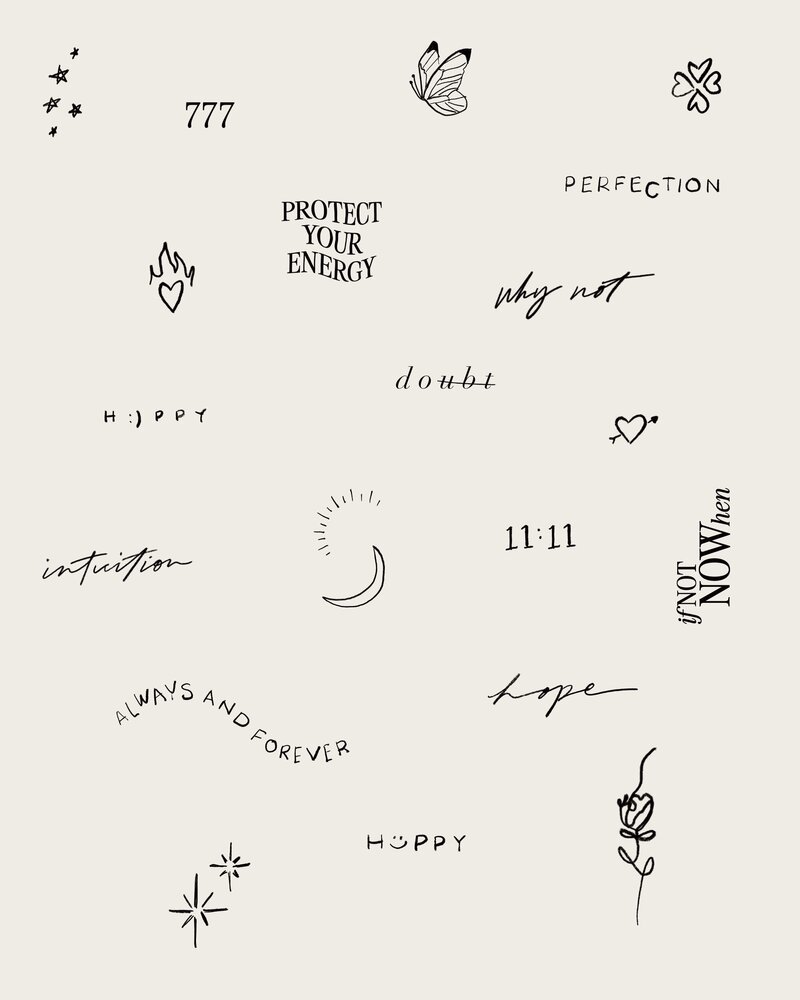 777
PERFECTION
PROTECT
YOUR
ENERGY
why not
doubt
H :) P P Y
11:11
if NOT
NOW hen
intuition
ALWAYS AND FOREVER
hope
H Ü P P Y